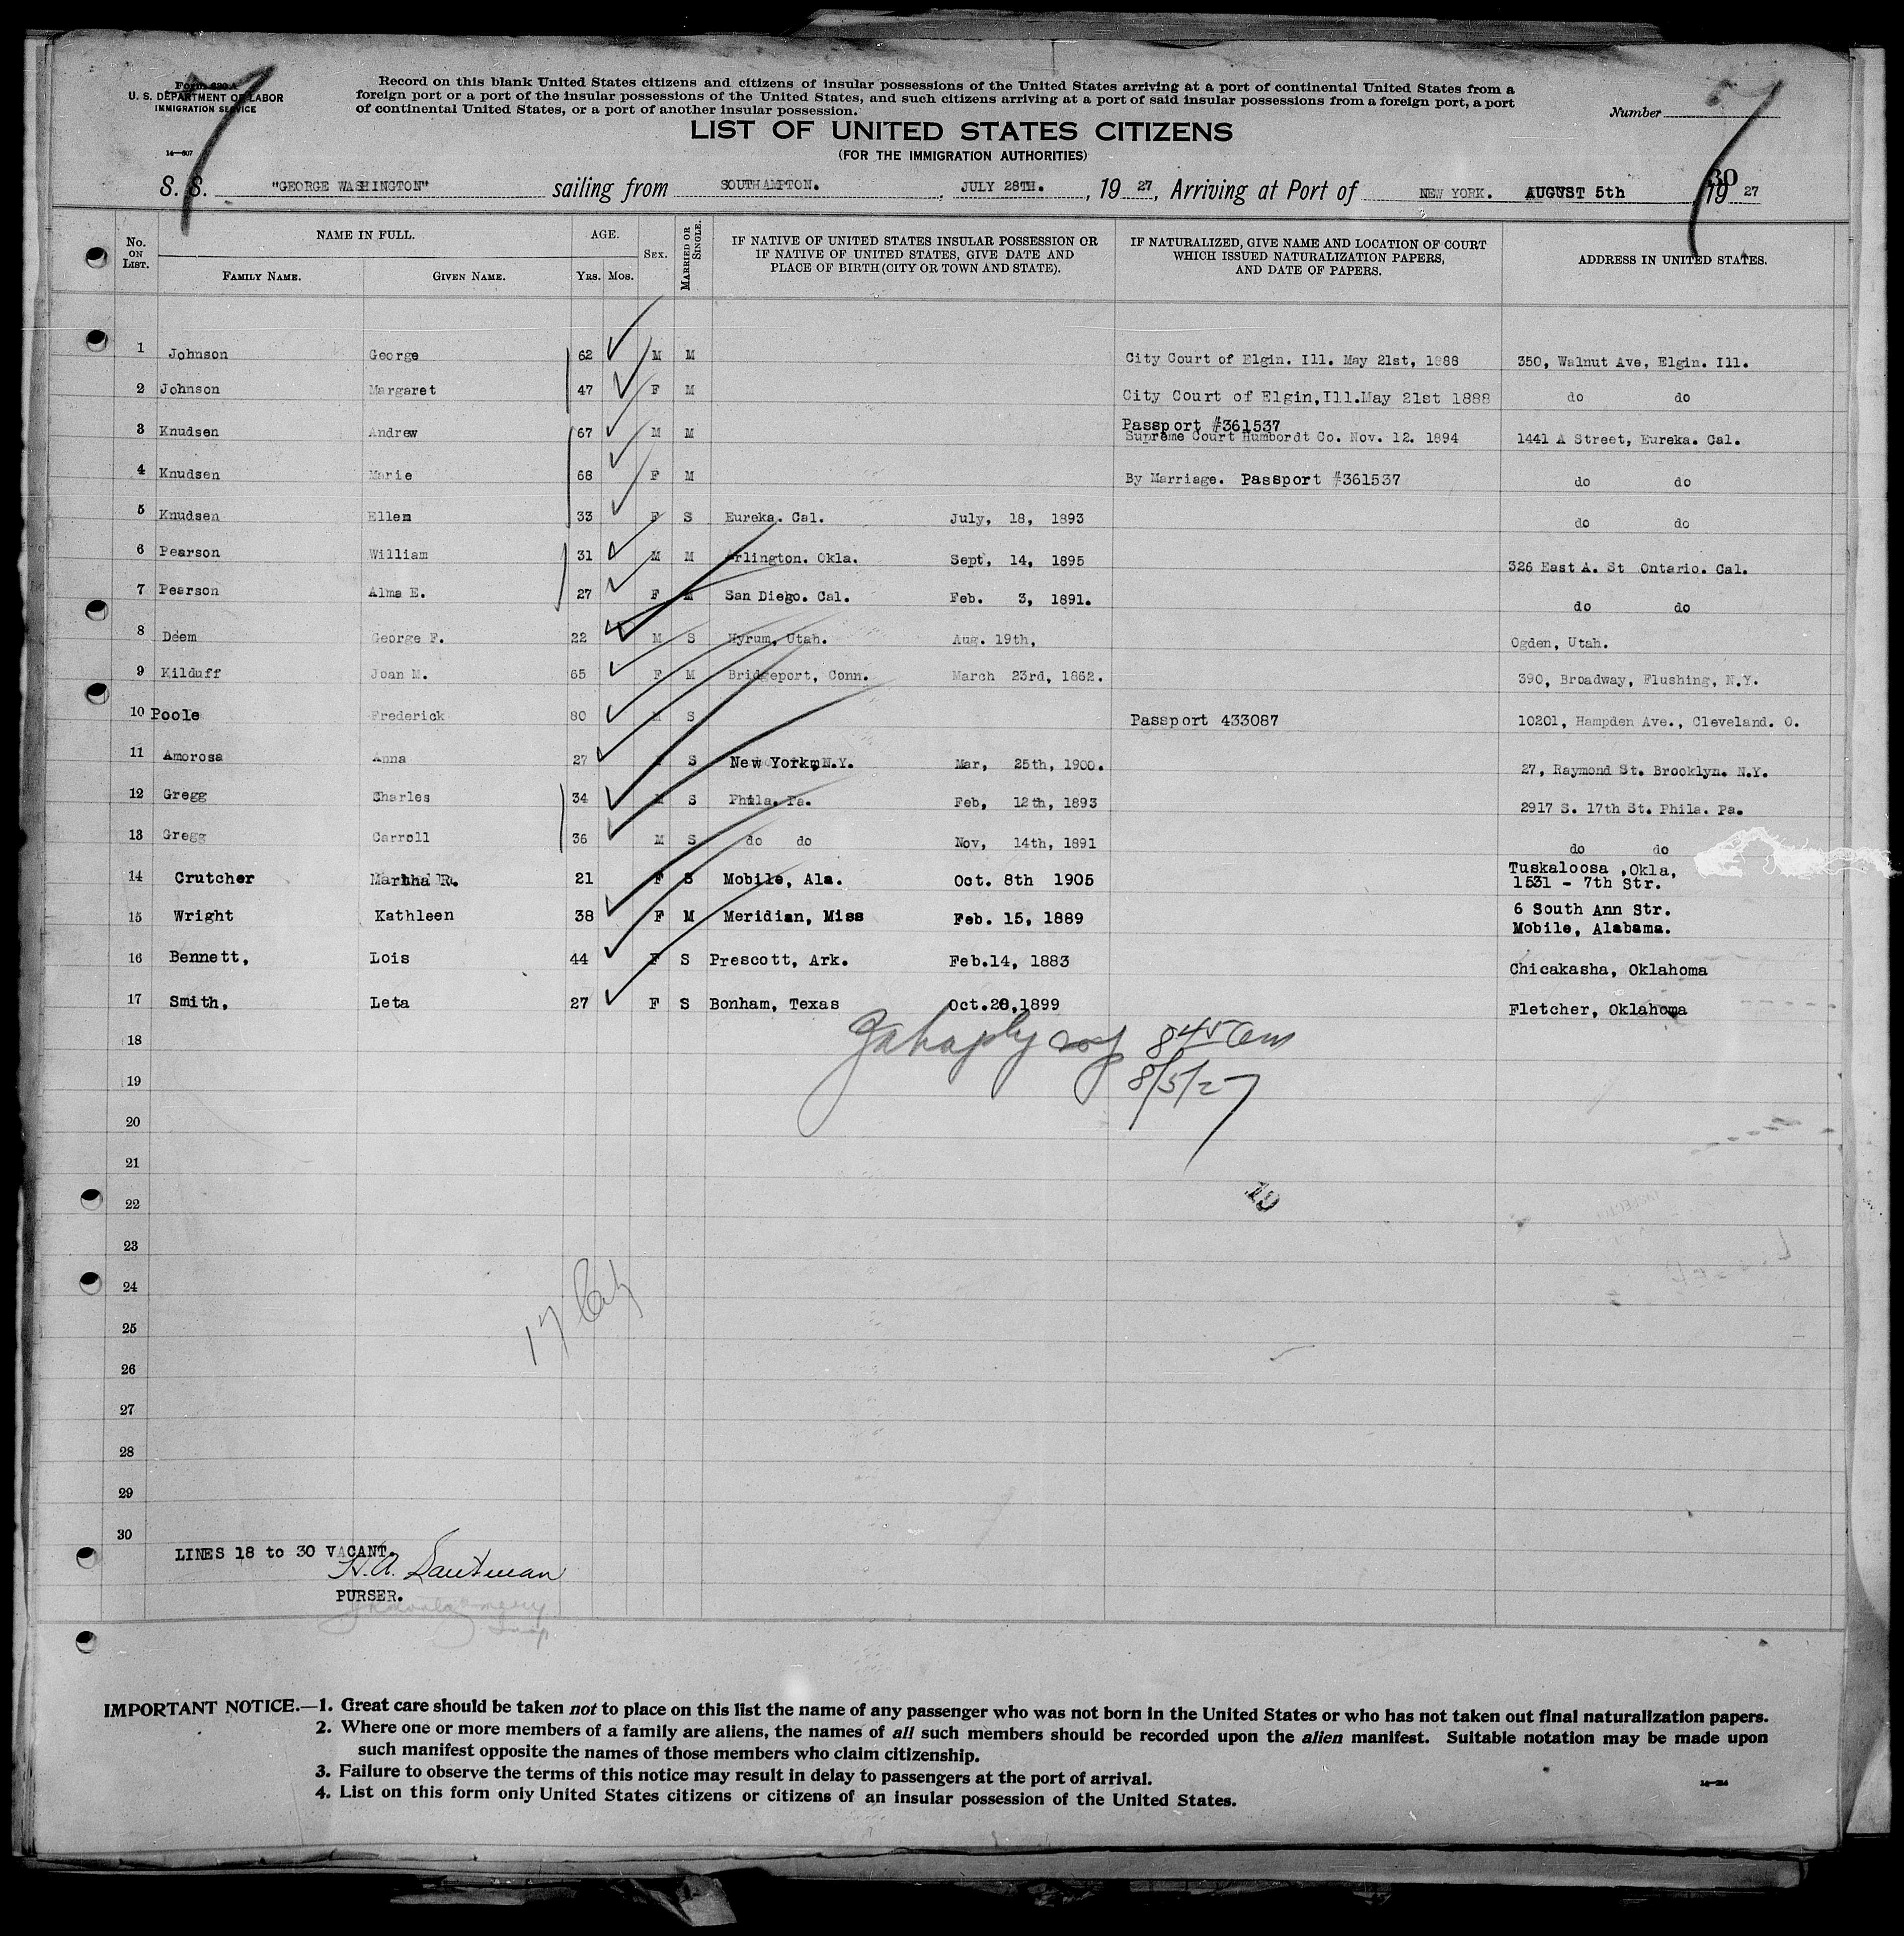 Form 630 A
U. S. DEPARTMENT OF LABOR
IMMIGRATION SERVICE
14—607
Record on this blank United States citizens and citizens of insular possessions of the United States arriving at a port of continental United States from a
foreign port or a port of the insular possessions of the United States, and such citizens arriving at a port of said insular possessions from a foreign port, a port
of continental United States, or a port of another insular possession.
Number
LIST OF UNITED STATES CITIZENS
(FOR THE IMMIGRATION AUTHORITIES)
30
S. S. "GEORGE WASHINGTON" sailing from SOUTHAMPTON. , JULY 28TH. , 19 27, Arriving at Port of NEW YORK. AUGUST 5th 19 27
No. ON LIST. NAME IN FULL. FAMILY NAME. GIVEN NAME. AGE. YRS. MOS. SEX. MARRIED OR SINGLE. IF NATIVE OF UNITED STATES INSULAR POSSESSION OR IF NATIVE OF UNITED STATES, GIVE DATE AND PLACE OF BIRTH (CITY OR TOWN AND STATE). IF NATURALIZED, GIVE NAME AND LOCATION OF COURT WHICH ISSUED NATURALIZATION PAPERS, AND DATE OF PAPERS. ADDRESS IN UNITED STATES.
1 Johnson George 62 M M City Court of Elgin. Ill. May 21st, 1888 350, Walnut Ave, Elgin. Ill.
2 Johnson Margaret 47 F M City Court of Elgin,Ill.May 21st 1888 do do
Passport #361537
3 Knudsen Andrew 67 M M Supreme Court Humbordt Co. Nov. 12. 1894 1441 A Street, Eureka. Cal.
4 Knudsen Marie 68 F M By Marriage. Passport #361537 do do
5 Knudsen Ellen 33 F S Eureka. Cal. July, 18, 1893 do do
6 Pearson William 31 M M Arlington. Okla. Sept, 14, 1895 326 East A. St Ontario. Cal.
7 Pearson Alma E. 27 F M San Diego. Cal. Feb. 3, 1891. do do
8 Deem George F. 22 M S Hyrum, Utah. Aug. 19th, Ogden, Utah.
9 Kilduff Joan M. 65 F M Bridgeport, Conn. March 23rd, 1862. 390, Broadway, Flushing, N.Y.
10 Poole Frederick 80 M S Passport 433087 10201, Hampden Ave., Cleveland. O.
11 Amorosa Anna 27 F S New York, N.Y. Mar, 25th, 1900. 27, Raymond St. Brooklyn. N.Y.
12 Gregg Charles 34 M S Phila. Pa. Feb, 12th, 1893 2917 S. 17th St. Phila. Pa.
13 Gregg Carroll 36 M S do do Nov, 14th, 1891 do do
14 Crutcher Martha R. 21 F S Mobile, Ala. Oct. 8th 1905 Tuskaloosa ,Okla,
1531 - 7th Str.
15 Wright Kathleen 38 F M Meridian, Miss Feb. 15, 1889 6 South Ann Str.
Mobile, Alabama.
16 Bennett, Lois 44 F S Prescott, Ark. Feb.14, 1883 Chicakasha, Oklahoma
17 Smith, Leta 27 F S Bonham, Texas Oct.20,1899 Fletcher, Oklahoma
18
845 am
19
8/5/27
20
21
22
19
23
24
25
17
26
27
28
29
30
LINES 18 to 30 VACANT.
PURSER.
IMPORTANT NOTICE.—1. Great care should be taken not to place on this list the name of any passenger who was not born in the United States or who has not taken out final naturalization papers.
2. Where one or more members of a family are aliens, the names of all such members should be recorded upon the alien manifest. Suitable notation may be made upon
such manifest opposite the names of those members who claim citizenship.
3. Failure to observe the terms of this notice may result in delay to passengers at the port of arrival.
4. List on this form only United States citizens or citizens of an insular possession of the United States.